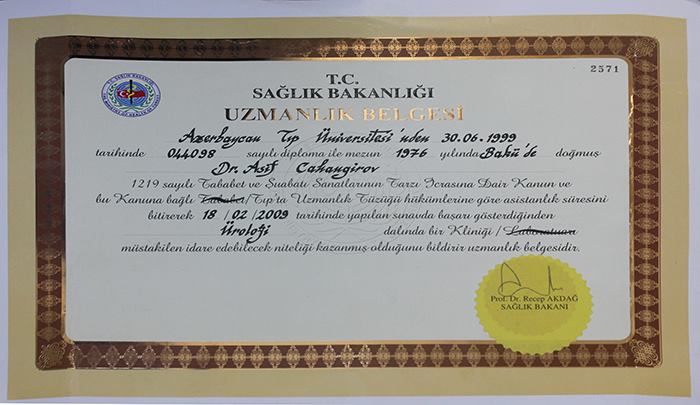 2571
T.C.
SAĞLIK BAKANLIĞI
UZMANLIK BELGESİ
Azerbaycan Tıp Üniversitesi'nden 30.06.1999
tarihinde 044098 sayılı diploma ile mezun 1976 yılında Bakü'de doğmuş
Dr. Asif Cahangirov
1219 sayılı Tababet ve Şuabatı Sanatlarının Tarzı İcrasına Dair Kanun ve
bu Kanuna bağlı Tababet/Tıp'ta Uzmanlık Tüzüğü hükümlerine göre asistanlık süresini
bitirerek 18 / 02 / 2009 tarihinde yapılan sınavda başarı gösterdiğinden
Üroloji dalında bir Kliniği / Laboratuarı
müstakilen idare edebilecek niteliği kazanmış olduğunu bildirir uzmanlık belgesidir.
Prof. Dr. Recep AKDAĞ
SAĞLIK BAKANI